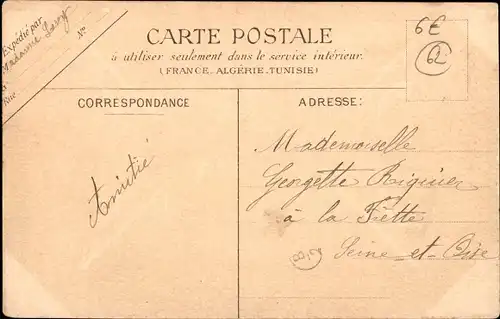 Expédié par
Madame
N°
Rue
CARTE POSTALE
à utiliser seulement dans le service intérieur.
(FRANCE, ALGÉRIE, TUNISIE)
6E
62
CORRESPONDANCE
ADRESSE:
Amitié
Mademoiselle
Georgette Riquier
à la Frette
Seine-et-Oise